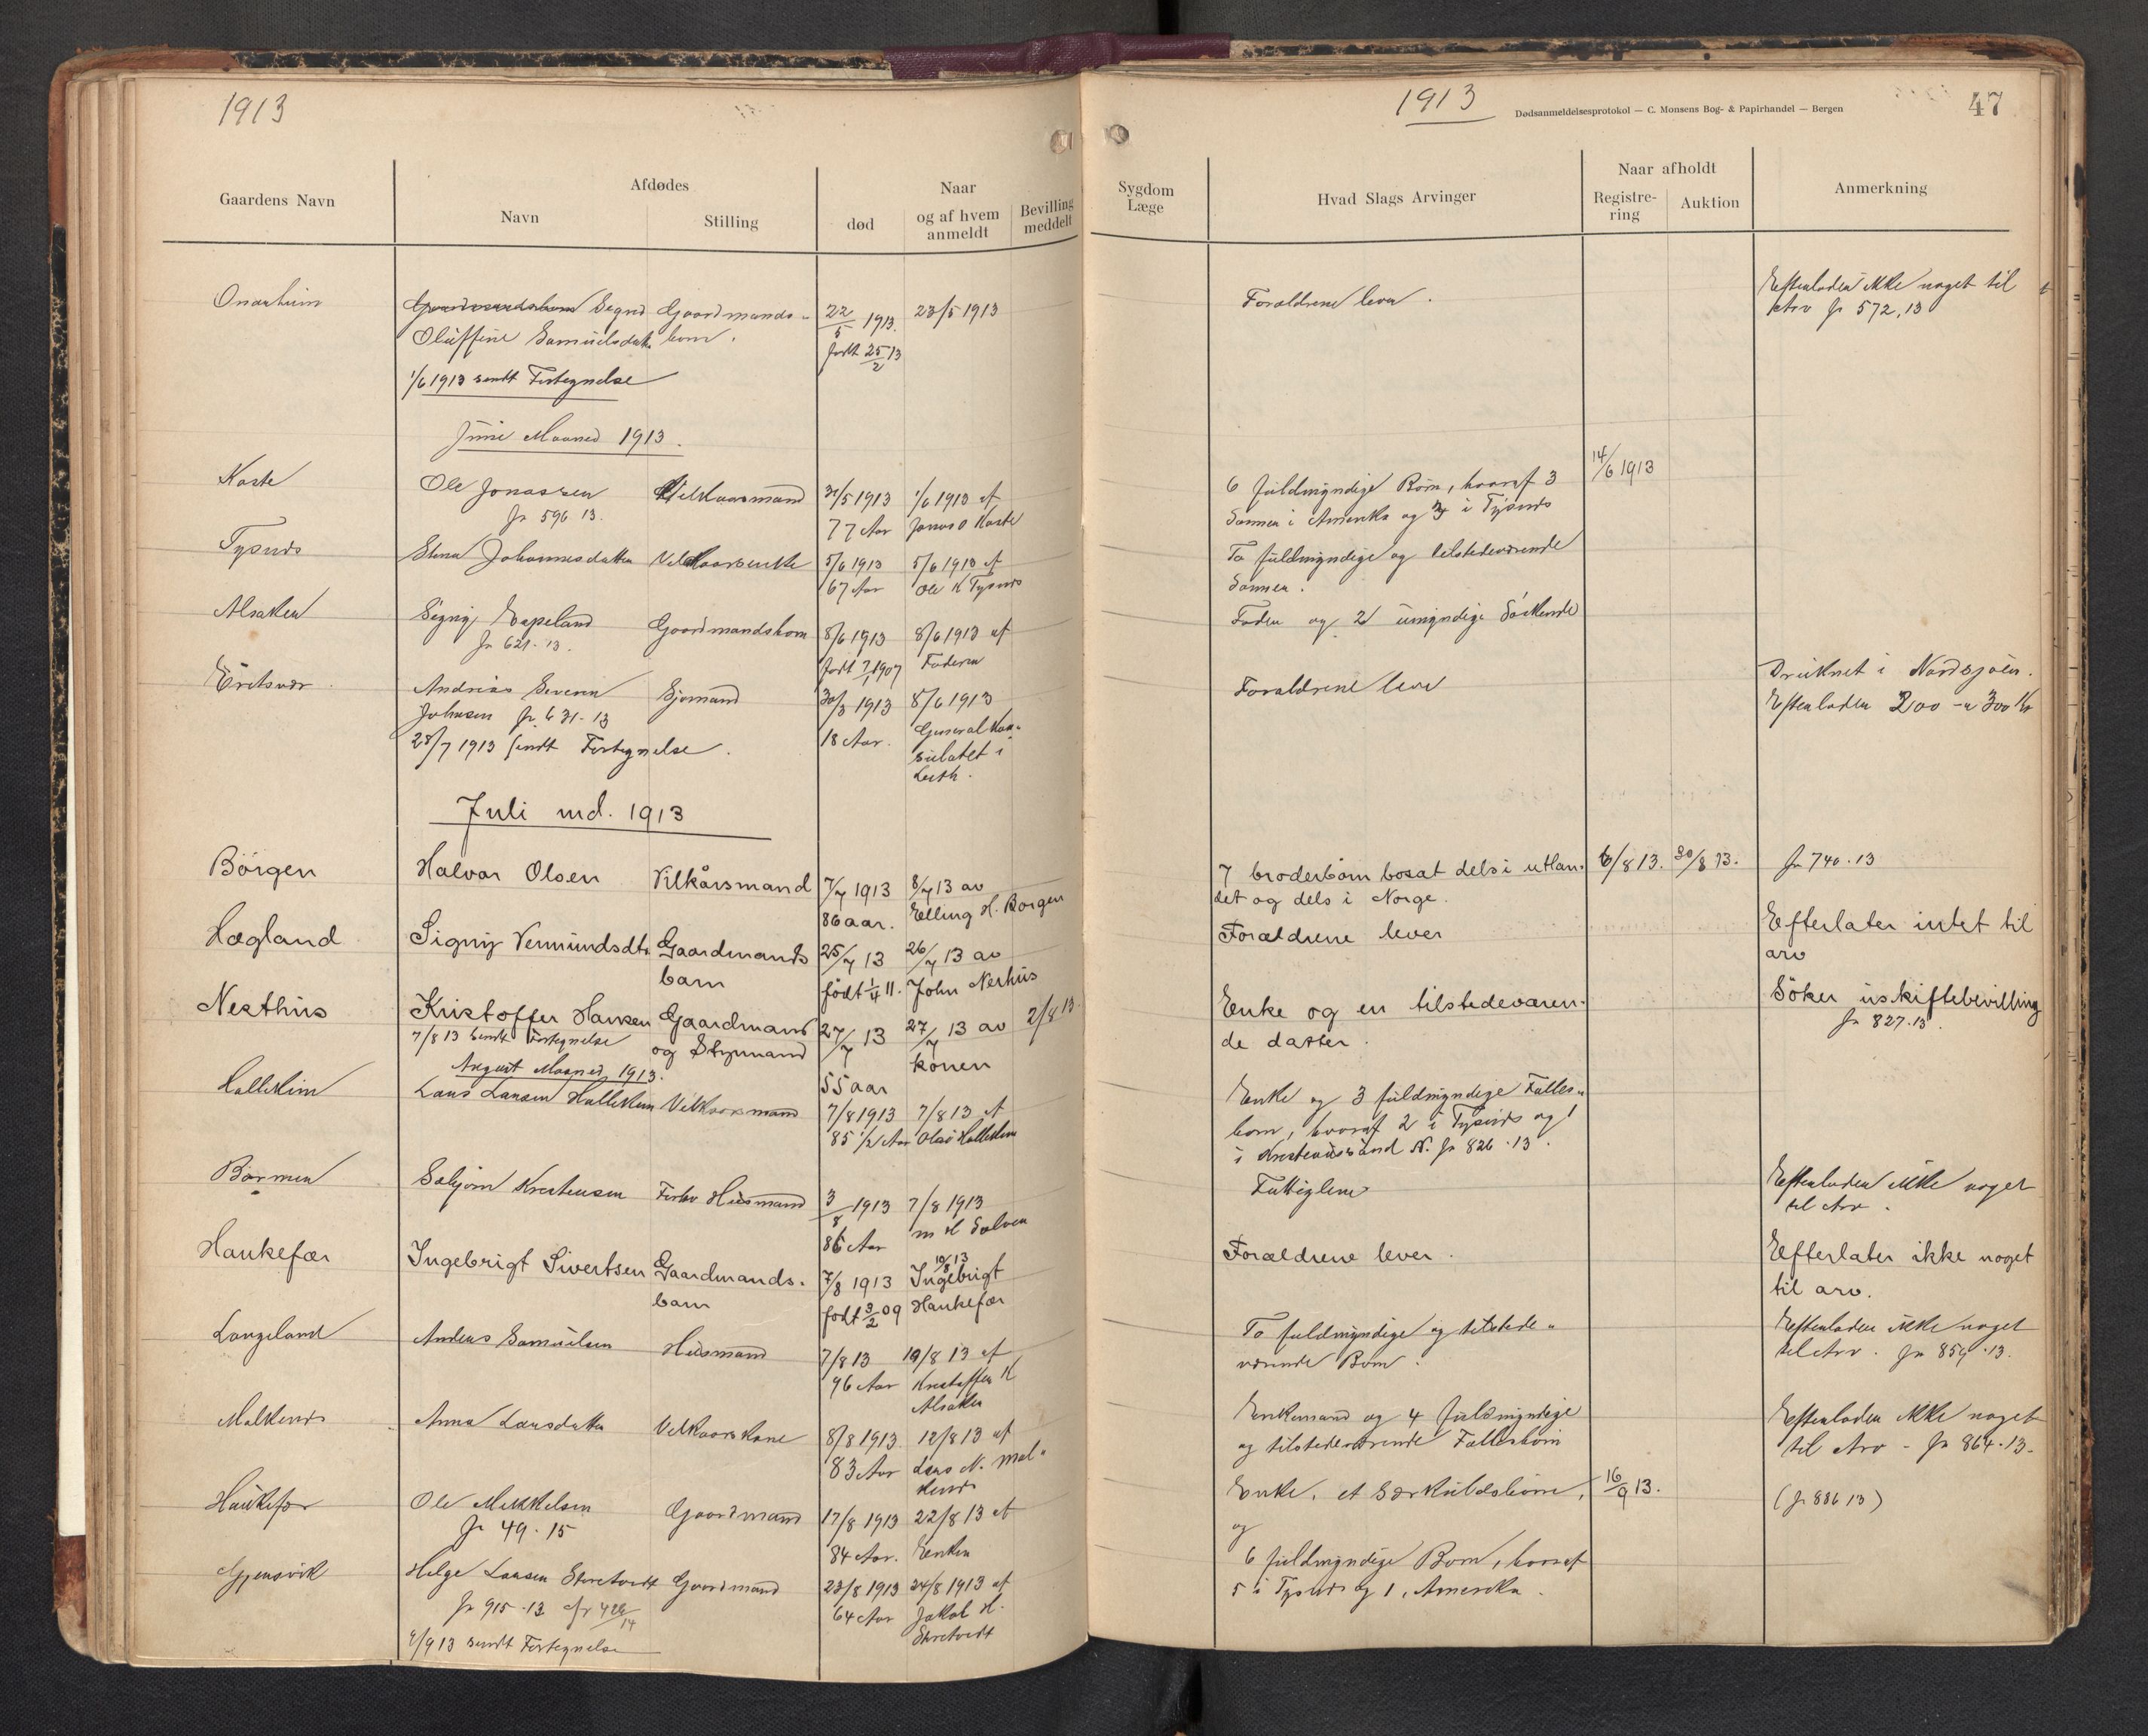 1913
Gaardens Navn
Afdødes
Navn
Stilling
Naar
død
og af hvem anmeldt
Bevilling meddelt
Onarheim
Gaardmandsbarn Signe Gaardmands-
Oluffine Samuelsdatter barn.
22/5 1913.
født 25/2 13
23/5 1913
1/6 1913 sendt Fortegnelse
Juni Maaned 1913.
Kaste
Ole Jonassen
jr 596 13.
Vilkaarsmand
31/5 1913
77 Aar
1/6 1913 af
Jonas O Kaste
Tysnes
Stena Johannesdatter
Vilkaarsenke
5/6 1913
67 Aar
5/6 1913 af
Ole K Tysnes
Alsaker
Signy Espeland
jr 621-13.
Gaardmandsbarn
8/6 1913
født 7/1 1907
8/6 1913 af
Faderen
Eritsvær
Andreas Severin
Johnsen jr 631-13
Sjømand
30/3 1913
18 Aar.
8/6 1913
General Kon-
sulatet i
Leith.
25/7 1913 sendt Fortegnelse.
Juli md. 1913
Börgen
Halvor Olsen
Vilkårsmand
7/7 1913
86 aar.
8/7 13 av
Elling H. Borgen
Hægland
Signy Vermundsdtr.
Gaardmands
barn
25/7 13
født 1/4 11.
26/7 13 av
John Nerhus
Nesthus
Kristoffer Hansen
7/8 13 sendt Fortegnelse
Gaardmand
og Styrmand
27/7 13
55 aar
27/7 13 av
konen
2/8 13
August Maaned 1913.
Hallekim
Lars Larsen Hallekim
Vilkaarsmand
7/8 1913
85 1/2 Aar
7/8 13 af
Olai Hallekim
Børmen
Sæbjørn Kristensen
Forhv Husmand
3/8 1913
86 Aar
7/8 1913
m H Solven
Haukefær
Ingebrigt Sivertsen
Gaardmands-
barn
7/8 1913
født 3/2 09
10/8 13
Ingebrigt
Haukefær
Langeland
Anders Samuelsen
Husmand
7/8 13
96 Aar
19/8 13 af
Kristoffer K
Alsaker
Malkenes
Anna Larsdatter
Vilkaarskone
8/8 1913
83 Aar
12/8 13 af
Lars N. Mal-
kenes
Haukefær
Ole Mikkelsen
jr 49-15
Gaardmand
17/8 1913
84 Aar.
22/8 13 af
Enken
Gjensvik
Helge Larsen Skretvedt
jr 915-13 cfr 428/14
Gaardmand
23/8 1913
64 Aar
24/8 1913 af
Jakob H.
Skretvedt
9/9 13 sendt Fortegnelse
1913
Dødsanmeldelsesprotokol — C. Monsens Bog- & Papirhandel — Bergen
47
Sygdom
Læge
Hvad Slags Arvinger
Naar afholdt
Registre-
ring
Auktion
Anmerkning
Forældrene lever.
Efterlader ikke noget til
Arv jr 572.13
6 fuldmyndige Børn, hvoraf 3
Sønner i Amerika og 3 i Tysnes
14/6 1913
To fuldmyndige og tilstedeværende
Sønner.
Fader og 2 umyndige Søskende
Forældrene lever
Druknet i Nordsjøen.
Efterlader 200 a 300 Kr
7 broderbörn bosat dels i utlan-
det og dels i Norge.
6/8 13.
30/8 13.
jr 740.13
Forældrene lever
Efterlater intet til
arv
Enke og en tilstedeværen-
de datter.
Söker uskiftebevilling
jr 827.13.
Enke og 3 fuldmyndige Fælles-
børn, hvoraf 2 i Tysnes og 1
i Kristiansund N. jr 826.13.
Fattiglem
Efterlader ikke noget
til Arv.
Forældrene lever.
Efterlater ikke noget
til arv.
To fuldmyndige og tilstede-
værende Børn.
Efterlader ikke noget
til Arv. jr 859.13.
Enkemand og 4 fuldmyndige
og tilstedeværende Fællesbørn
Efterlader ikke noget
til Arv - jr 864.13-
Enke, et Særkuldsbarn,
og
16/9 13.
(jr 886 13)
6 fuldmyndige Børn, hvoraf
5 i Tysnes og 1 i Amerika.